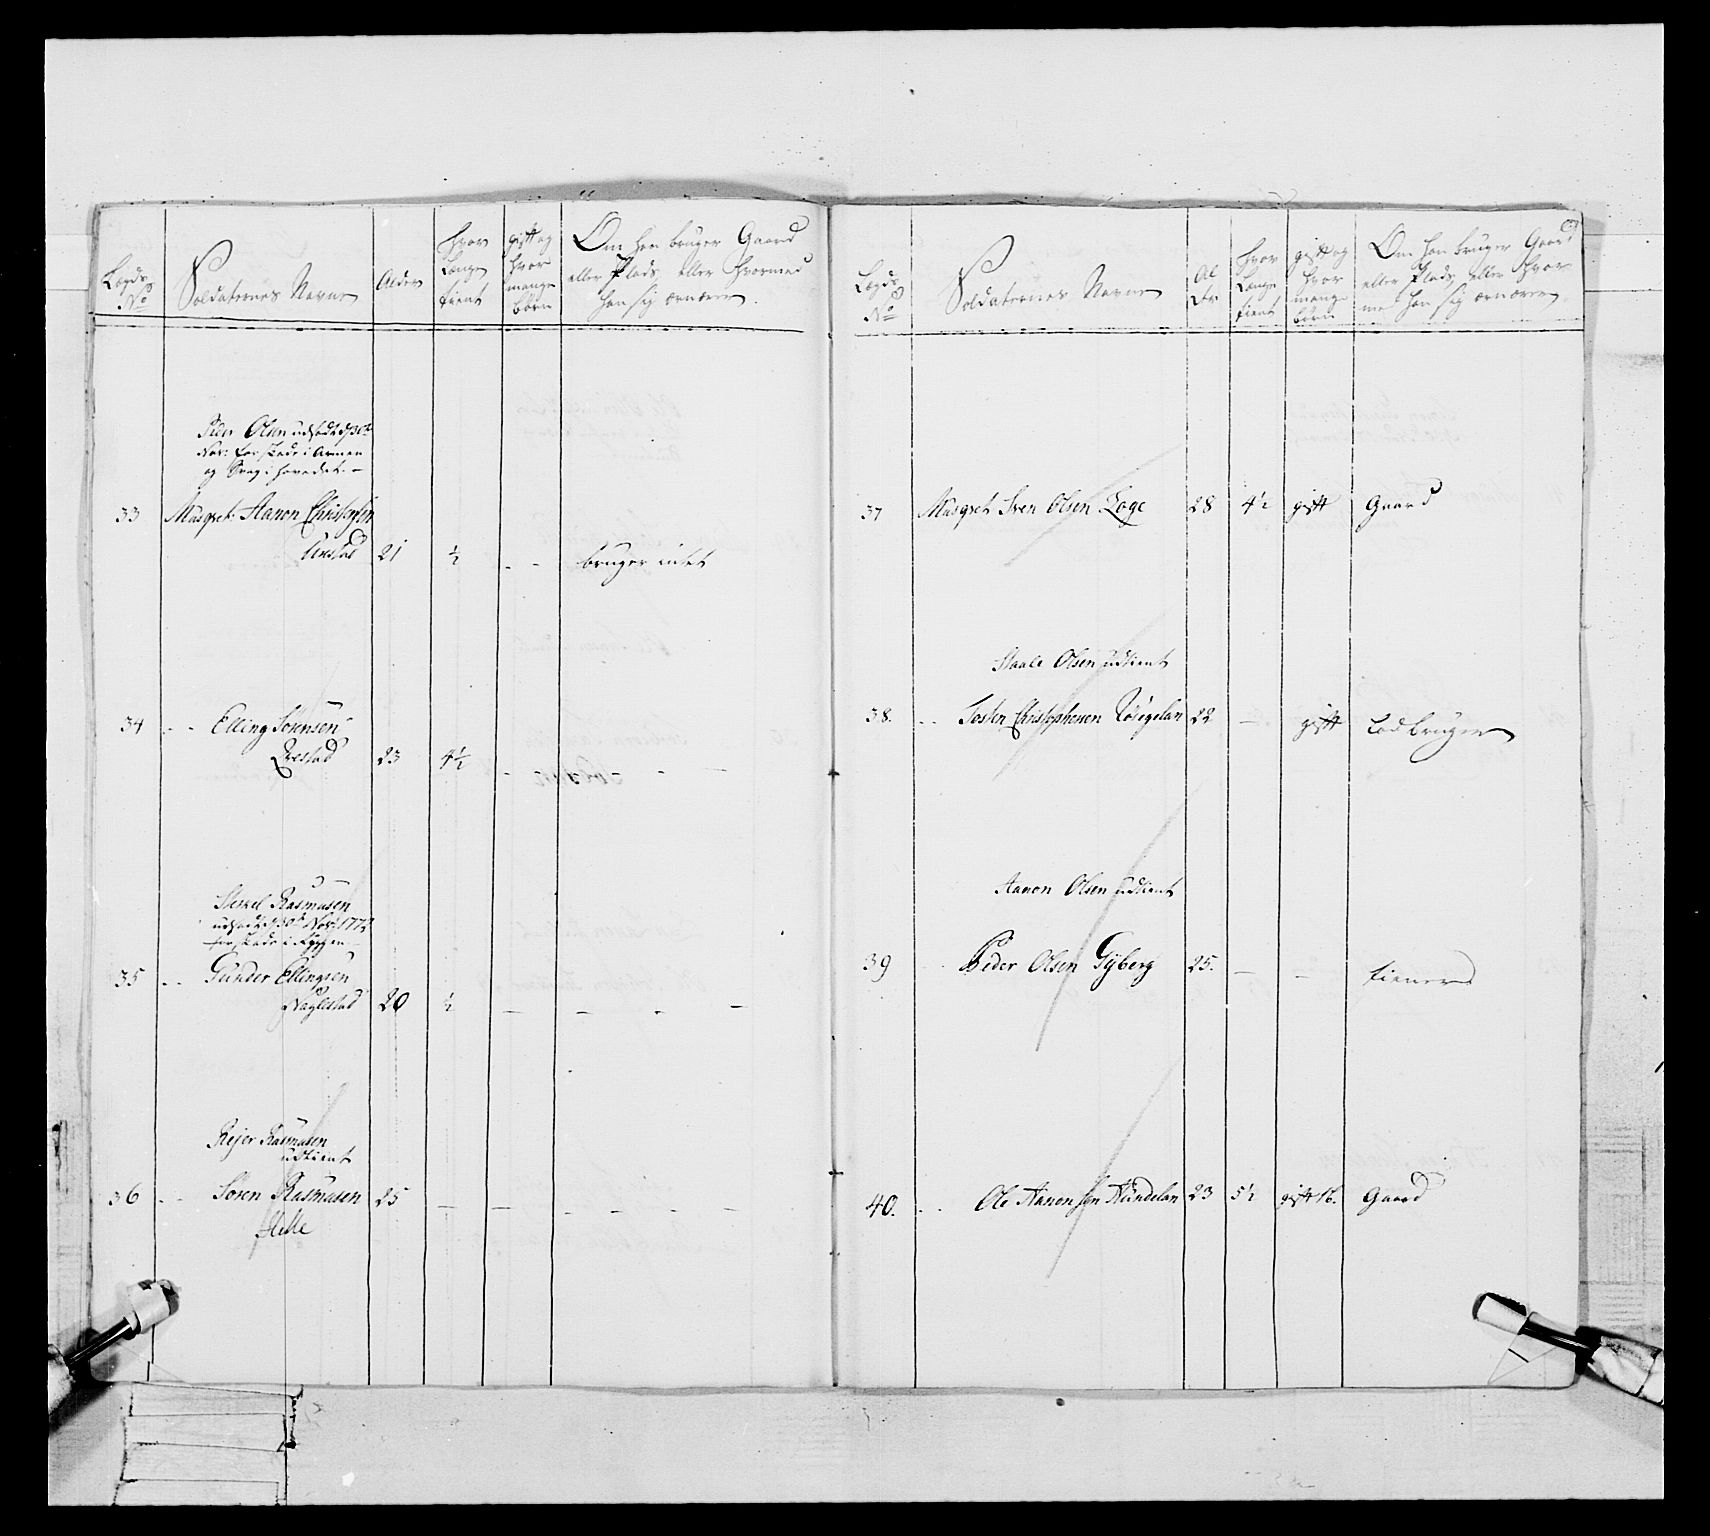 Lægds No
Soldaternes Navne
Alder
hvor Længe tient
gift og hvor mange børn
Om han bruger Gaard
eller Plads, eller hvormed
han sig ernærer.
Peder Olsen udskudt d 30te
Nov: for skade i Armen
og Svag i hovedet. -
33 Musqvet: Aanon Christensen
21 ½ - - bruger intet
34 - - Elling Sörensen
Qvestad 23 4½ -
Rasmusen
udskudt d 30te Nov: 1772
for skade i Ryggen
35 - - Gunder Ellingsen
Naglestad 20 ½ - - - -
Rejer Rasmusen
udtient
36 - - Sören Rasmusen 25 - - - - - -
Helle
Lægds No
Soldaternes Navne
Alder
hvor Længe tient
gift og hvor mange børn
Om han bruger Gaard
eller Plads, eller hvor
med han sig ernærer.
37 Musqvet Sven Olsen Loge 28 4½ gift Gaard
Staale Olsen udtient
38. - - Tosten Christophersen 22 - gift
Aanon Olsen udtient
39 - Peder Olsen Gyberg 25. - - tiener
40. - - Ole Aanonsen 23 5½ gift 1b. Gaard